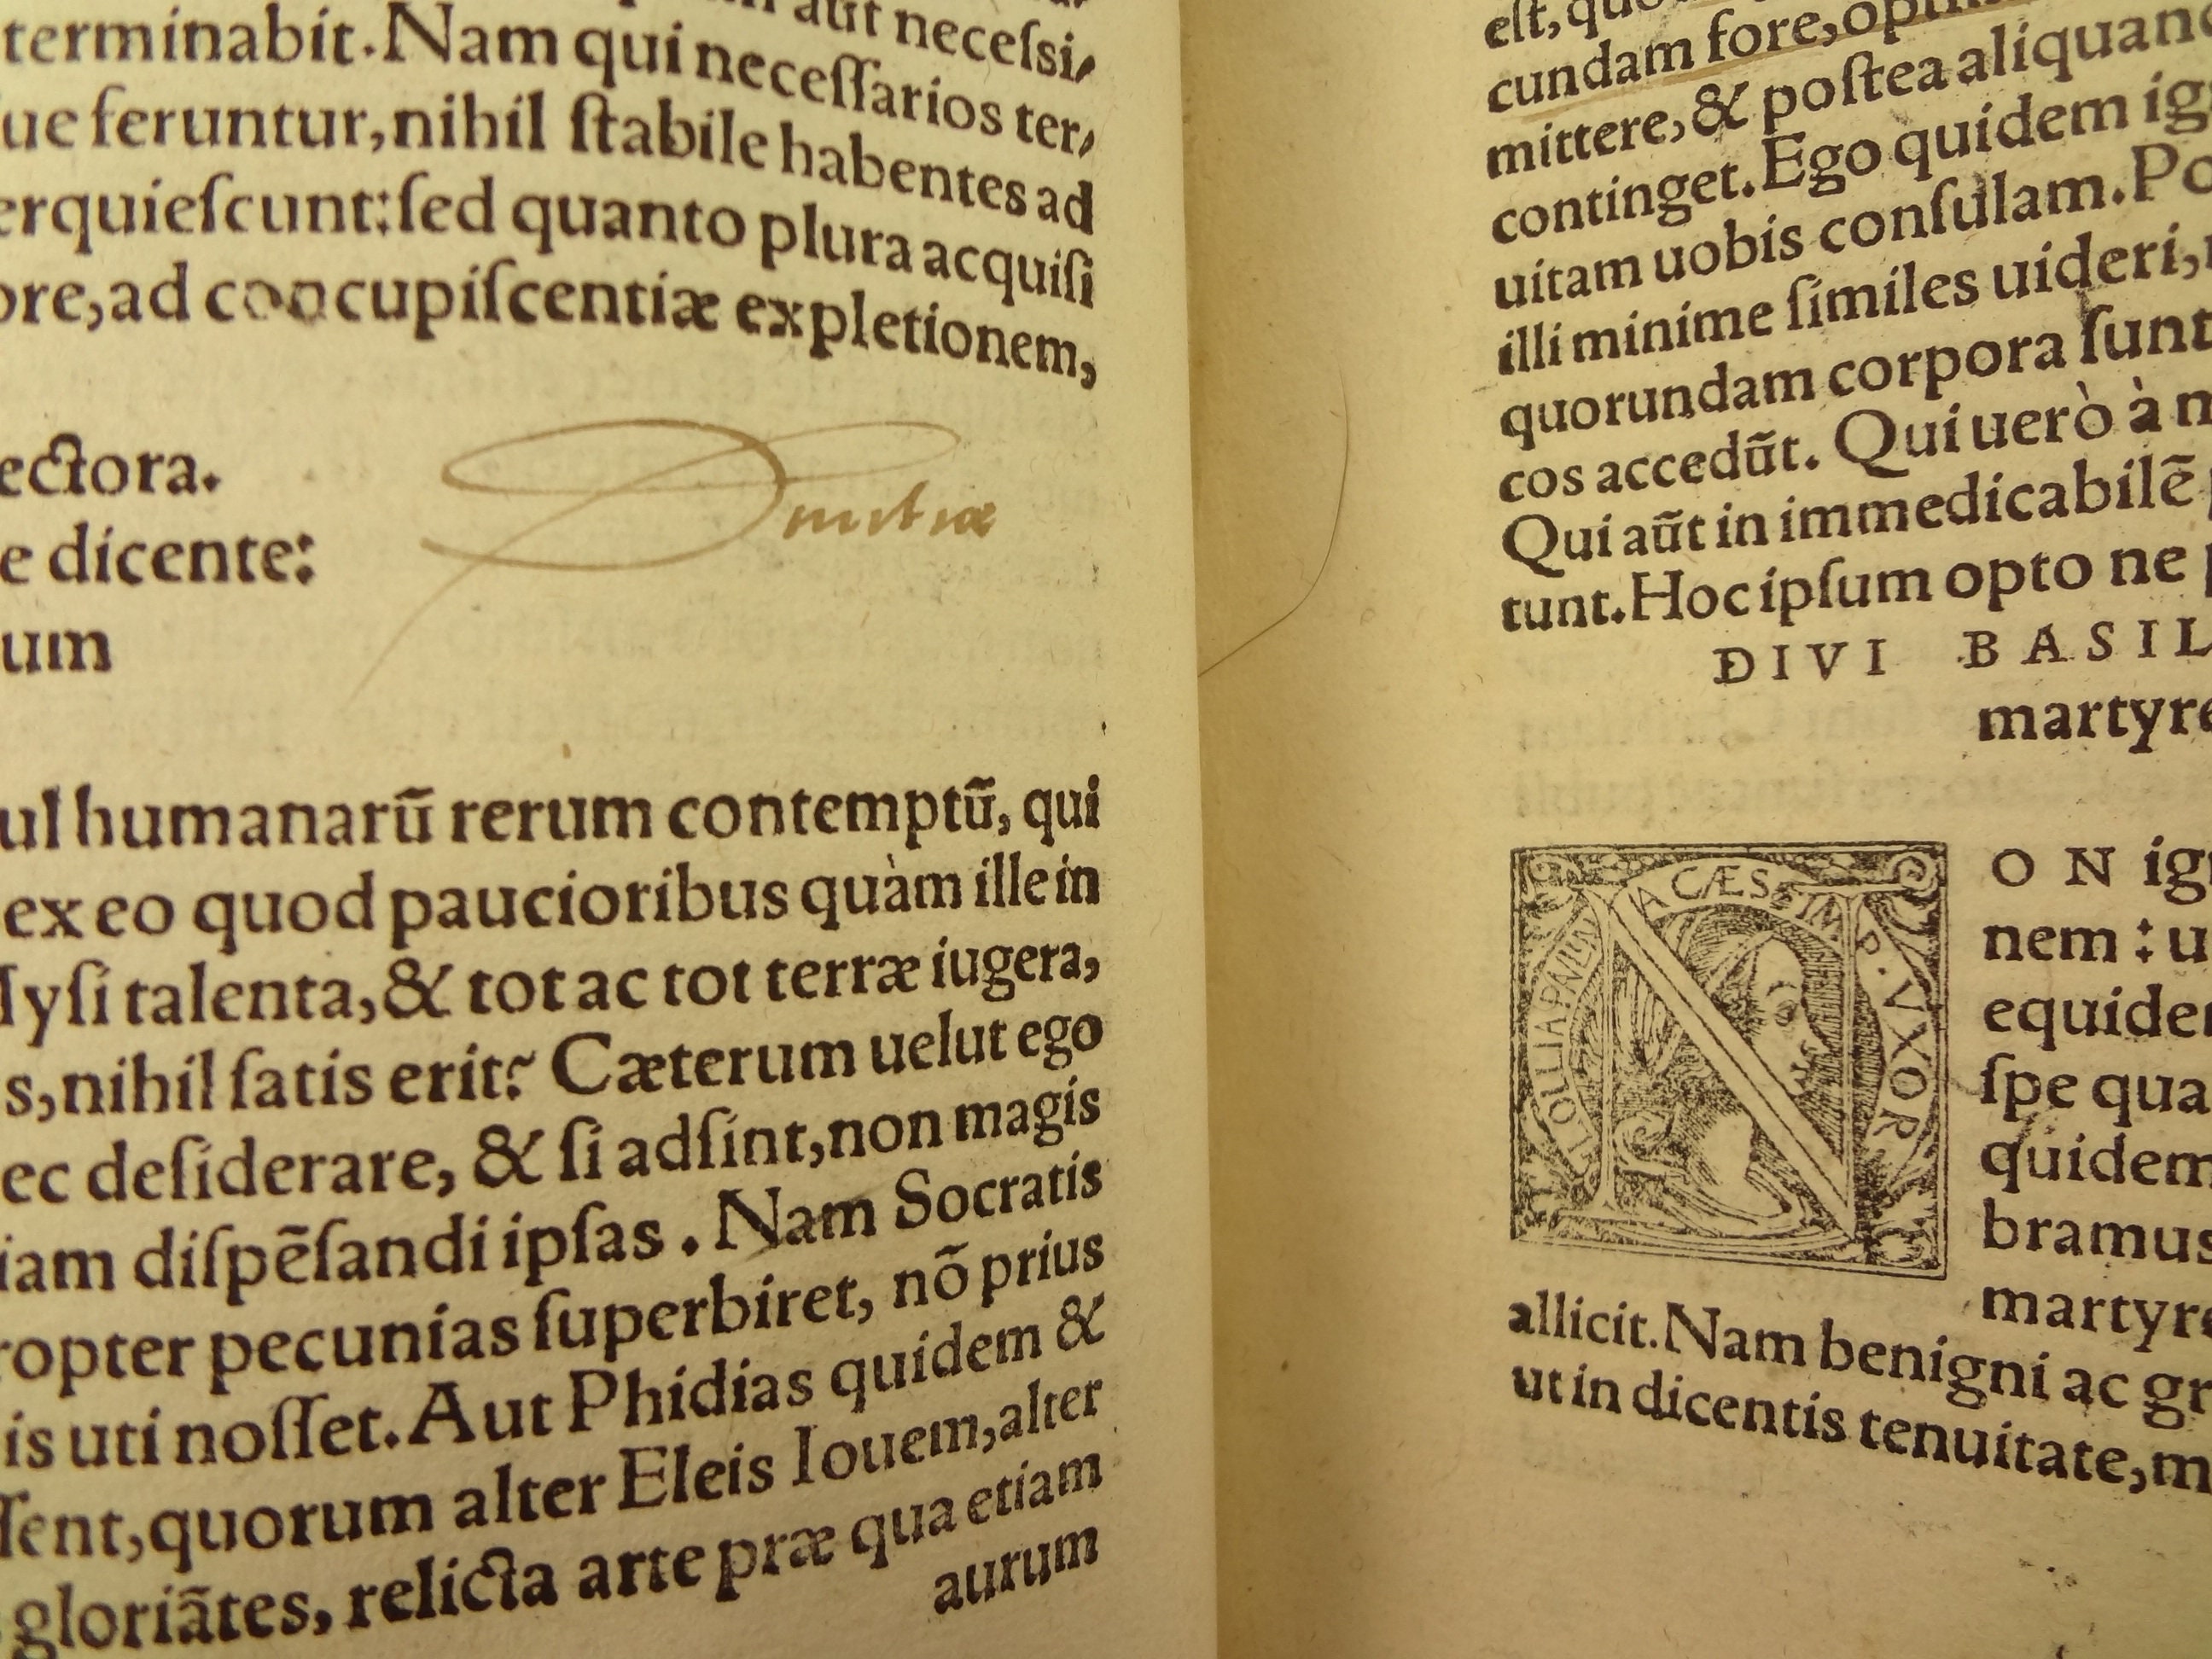 aut necesſi,
terminabit. Nam qui neceſſarios ter,
ue feruntur, nihil ſtabile habentes ad
erquieſcunt: ſed quanto plura acquiſi
ore, ad concupiſcentiæ expletionem,
ectora.
e dicente:
um
Diuitiæ
ul humanarũ rerum contemptũ, qui
ex eo quod paucioribus quàm ille in
Myſi talenta, & tot ac tot terræ iugera,
s, nihil ſatis erit? Cæterum uelut ego
ec deſiderare, & ſi adſint, non magis
iam diſpẽſandi ipſas. Nam Socratis
ropter pecunias ſuperbiret, nõ prius
is uti noſſet. Aut Phidias quidem &
ſſent, quorum alter Eleis Iouem, alter
gloriãtes, relicta arte præ qua etiam
aurum
eſt,
cundam fore,
mittere, & poſtea
continget. Ego quidem
uitam uobis conſulam. Po
illi minime ſimiles uideri,
quorundam corpora ſunt
cos accedũt. Qui uerò à m
Qui aũt in immedicabilẽ p
tunt. Hoc ipſum opto ne p
DIVI BASIL
martyre
LOLLIA PAULINA CÆS IMP. VXOR
N
ON ig
nem: u
equide
ſpe qua
quidem
bramus
martyre
allicit. Nam benigni ac gr
ut in dicentis tenuitate, m